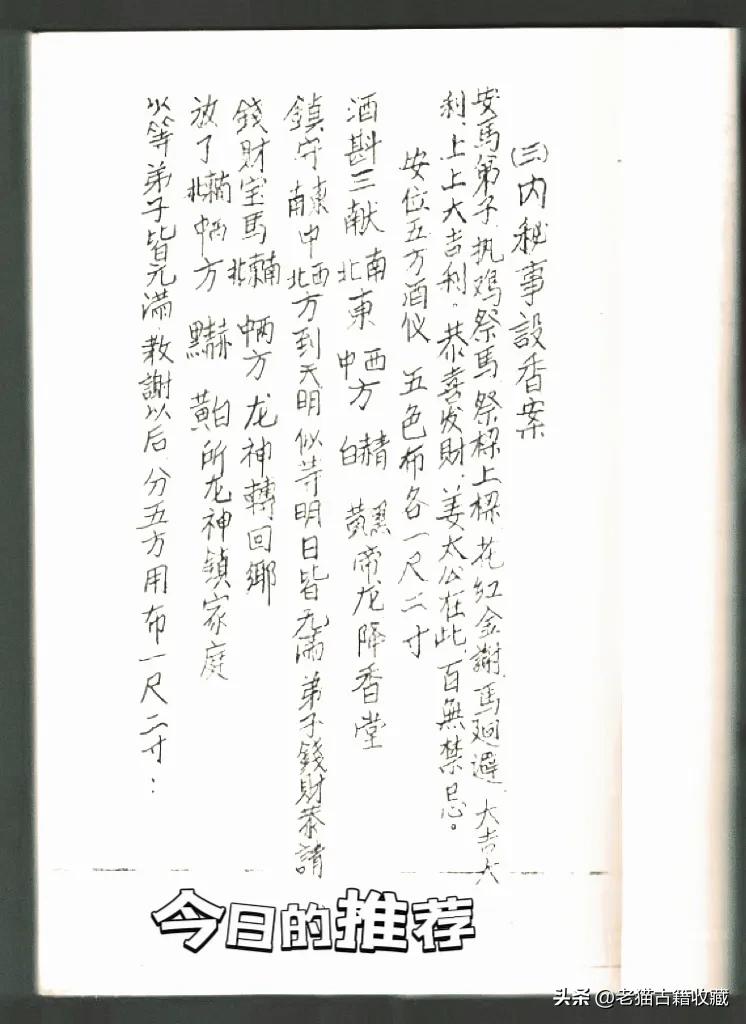 (三)内秘事設香案
安馬第子.执鸡祭馬.祭樑上樑.花红金謝.馬廻避.大吉大
利.上上大吉利.恭喜发財.姜太公在此.百無禁忌。
安位五方酒仪 五色布各一尺二寸
酒斟三献 南北東 西中方 白赫青 黄黑帝龙降香堂
鎮守東南中西北方到天明似等明日皆元满弟子錢財恭請
錢財宝馬東南北西中方龙神轉回鄉
放了東南北西中方 黑赫青 黄白所龙神鎮家庭
以等弟子皆元满.教謝以后分五方用布一尺二寸：
今日的推荐
头条 @老猫古籍收藏